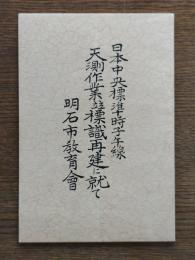 日本中央標準時子午線
天測作業並標識再建に就て
明石市教育會